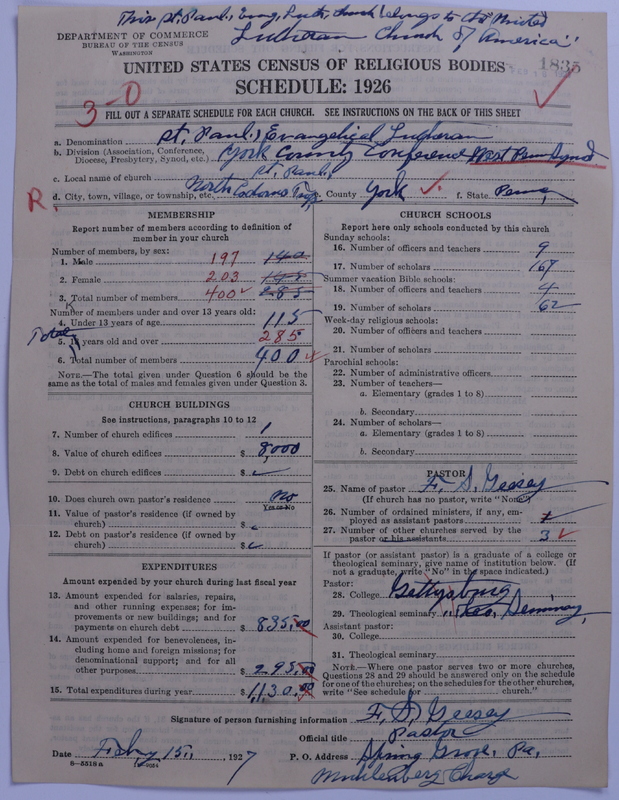 This St. Paul's Evang. Luth. church belongs to the United
Lutheran Church of America"
DEPARTMENT OF COMMERCE
BUREAU OF THE CENSUS
WASHINGTON
1835
UNITED STATES CENSUS OF RELIGIOUS BODIES
SCHEDULE: 1926
3-0
FILL OUT A SEPARATE SCHEDULE FOR EACH CHURCH. SEE INSTRUCTIONS ON THE BACK OF THIS SHEET
a. Denomination St. Paul's Evangelical Lutheran
b. Division (Association, Conference, Diocese, Presbytery, Synod, etc.) York County Conference West Penn Synod
c. Local name of church St. Paul's
R. d. City, town, village, or township, etc. North Codorus Twp. e. County York f. State Penna.
MEMBERSHIP
Report number of members according to definition of
member in your church
Number of members, by sex:
1. Male 197 140
2. Female 203 145
3. Total number of members 400 285
Number of members under and over 13 years old:
4. Under 13 years of age 115
Total
5. 13 years old and over 285
6. Total number of members 400
NOTE.—The total given under Question 6 should be the
same as the total of males and females given under Question 3.
CHURCH BUILDINGS
See instructions, paragraphs 10 to 12
7. Number of church edifices 1
8. Value of church edifices $ 8,000
9. Debt on church edifices $
10. Does church own pastor's residence No
Yes or No
11. Value of pastor's residence (if owned by
church) $
12. Debt on pastor's residence (if owned by
church) $
EXPENDITURES
Amount expended by your church during last fiscal year
13. Amount expended for salaries, repairs,
and other running expenses; for im-
provements or new buildings; and for
payments on church debt $ 835.00
14. Amount expended for benevolences, in-
cluding home and foreign missions; for
denominational support; and for all
other purposes $ 295.00
15. Total expenditures during year $ 1,130.00
CHURCH SCHOOLS
Report here only schools conducted by this church
Sunday schools:
16. Number of officers and teachers 9
17. Number of scholars 168
Summer vacation Bible schools:
18. Number of officers and teachers 4
19. Number of scholars 62
Week-day religious schools:
20. Number of officers and teachers
21. Number of scholars
Parochial schools:
22. Number of administrative officers
23. Number of teachers—
a. Elementary (grades 1 to 8)
b. Secondary
24. Number of scholars—
a. Elementary (grades 1 to 8)
b. Secondary
PASTOR
25. Name of pastor F. S. Geesey
(If church has no pastor, write "None")
26. Number of ordained ministers, if any, em-
ployed as assistant pastors
27. Number of other churches served by the
pastor or his assistants 3
If pastor (or assistant pastor) is a graduate of a college or
theological seminary, give name of institution below. (If
not a graduate, write "No" in the space indicated.)
Pastor:
28. College Gettysburg
29. Theological seminary " Theo. Seminary
Assistant pastor:
30. College
31. Theological seminary
NOTE.—Where one pastor serves two or more churches,
Questions 28 and 29 should be answered only on the schedule
for one of the churches; on the schedules for the other churches,
write "See schedule for church."
Signature of person furnishing information F. S. Geesey
Official title Pastor
Date Feb'y 15, 1927 P. O. Address Spring Grove, Pa.
8-5518a
Muhlenberg Charge